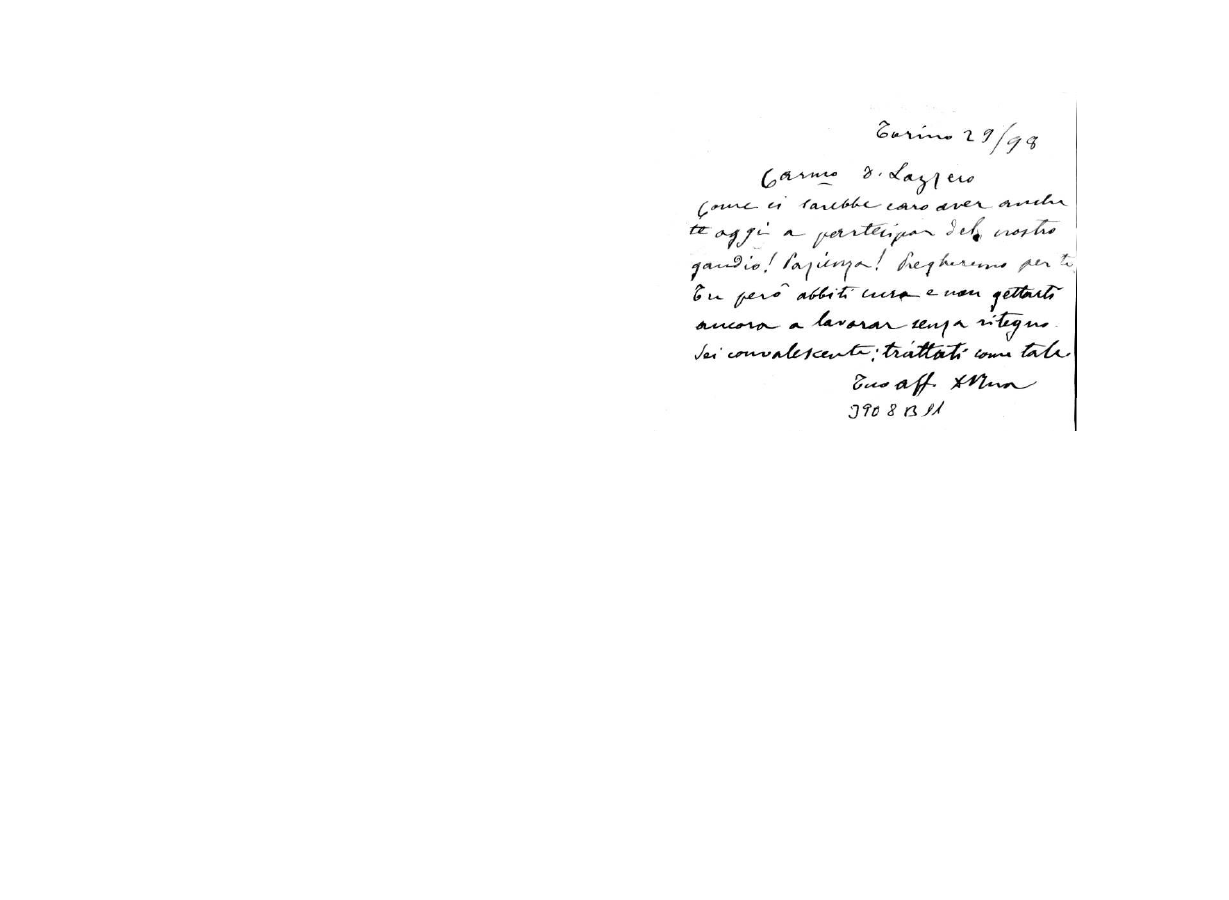 Torino 29/98
Carmo D. Lazzero
Come ci sarebbe caro aver anche
te oggi a partecipar del nostro
gaudio! Pazienza! Pregheremo per te
Tu però abbiti cura e non gettarti
ancora a lavorar senza ritegno.
Sei convalescente; trattati come tale
Tuo aff. Rua
3908 B 11